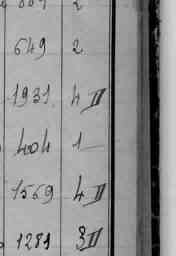 649 2
1931 4 II
404 1
1569 4 II
1281 3 II